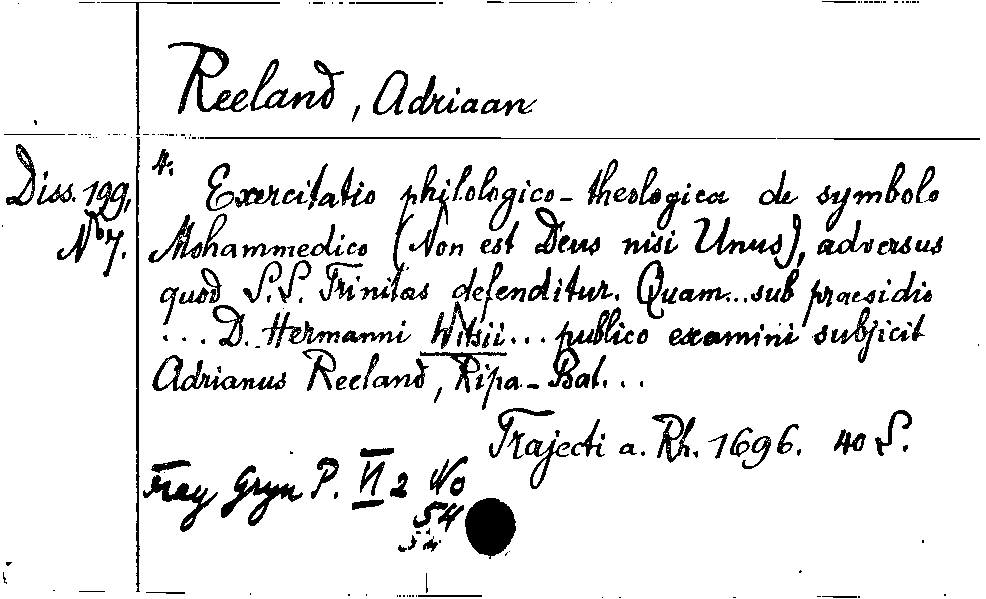 Reeland, Adriaan
Diss. 199,
No 7.
4.
Exercitatio philologico-theologica de symbolo
Mohammedico (Non est Deus nisi Unus), adversus
quod S.S. Trinitas defenditur. Quam...sub praesidio
... D. Hermanni Witsii... publico examini subjicit
Adrianus Reeland, Ripa-Bat...
Trajecti a. Rh. 1696. 40 S.
Fray Gryn P. VI 2 No
54
54